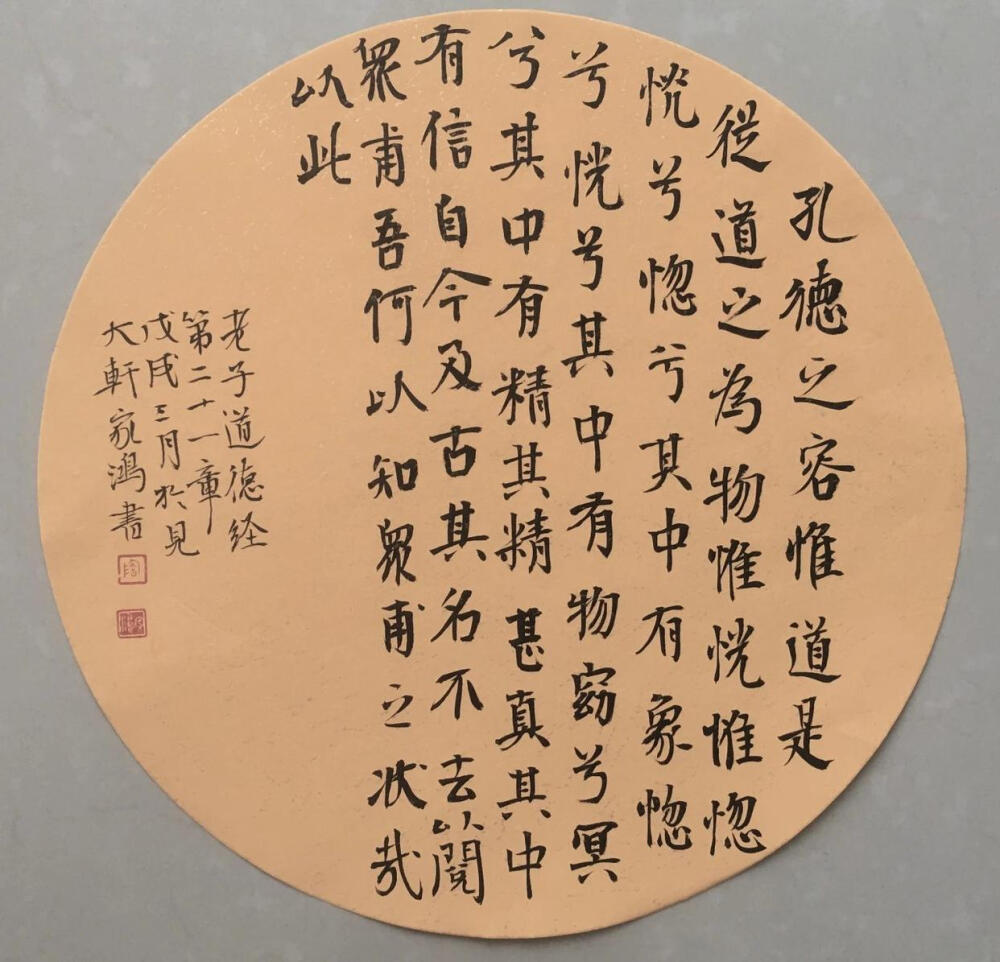 孔德之容惟道是
從道之為物惟恍惟惚
恍兮惚兮其中有象惚
兮恍兮其中有物窈兮冥
兮其中有精其精甚真其中
有信自今及古其名不去以閱
眾甫吾何以知眾甫之状哉
以此
老子道德経
第二十一章
戊戌三月於見
大軒家鴻書